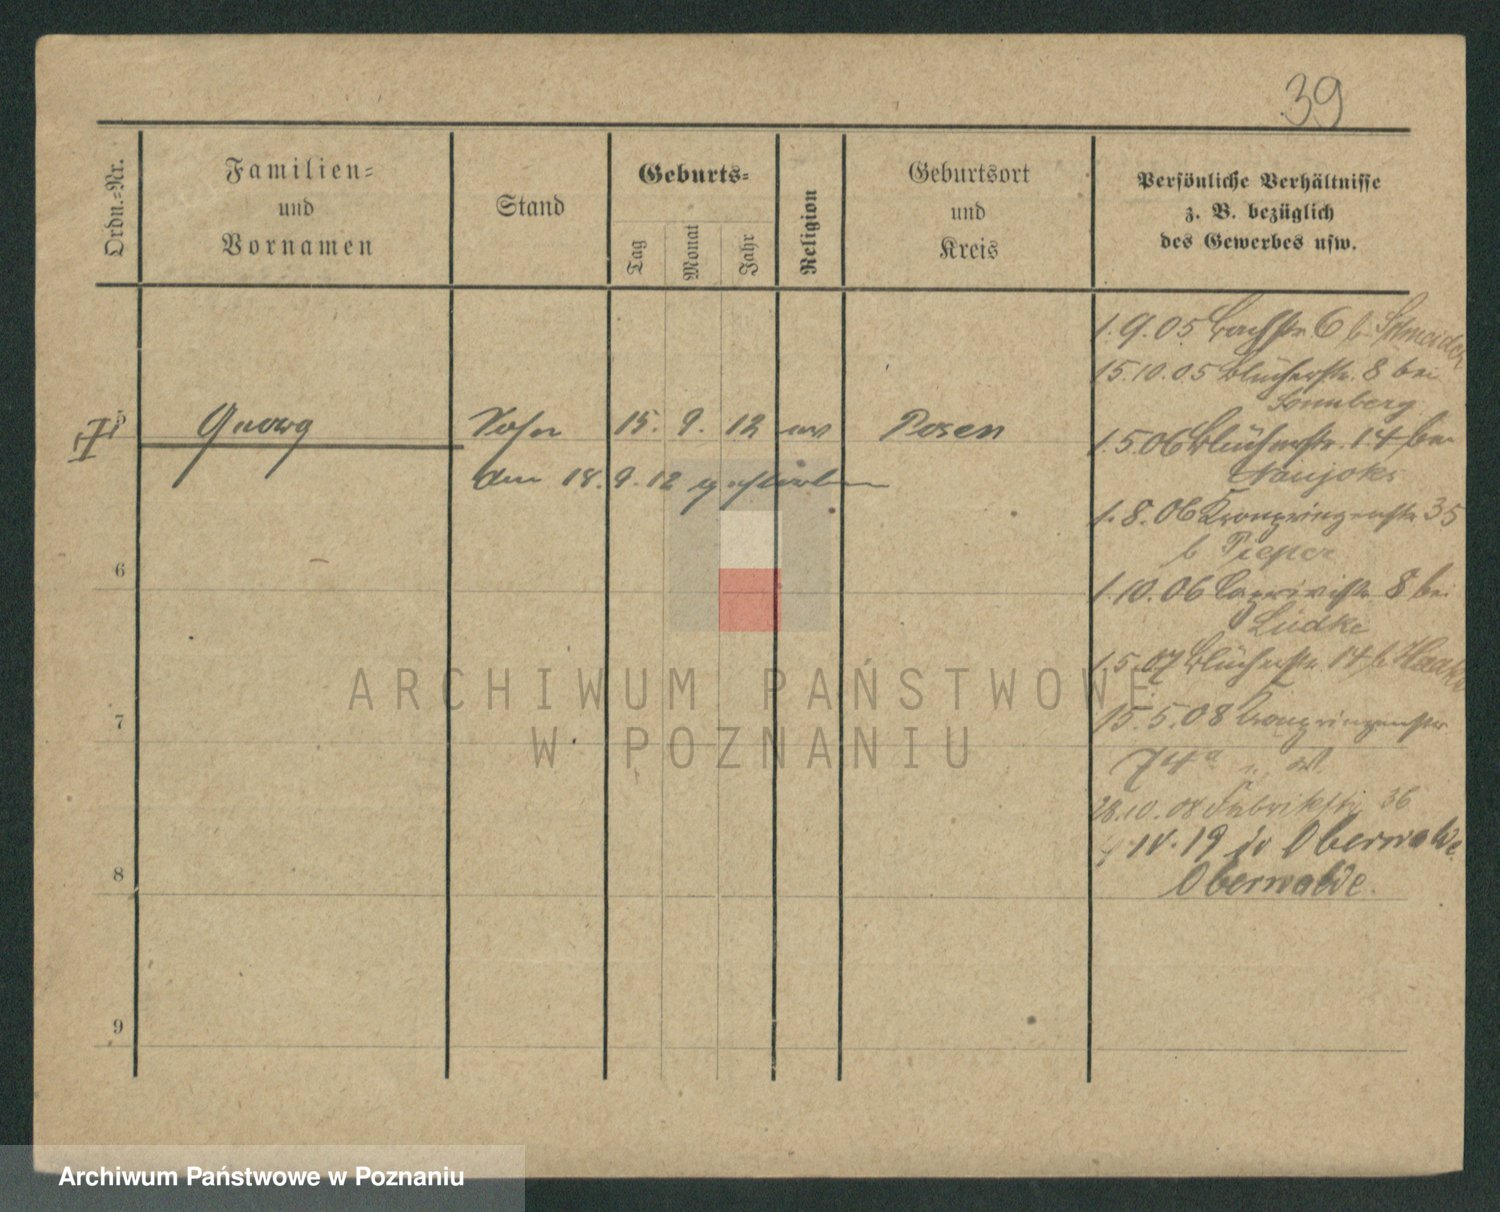 39
Ordn.-Nr.
Familien-
und
Vornamen
Stand
Geburts-
Tag
Monat
Jahr
Religion
Geburtsort
und
Kreis
Persönliche Verhältnisse
z. B. bezüglich
des Gewerbes usw.
1.9.05 Bachstr. 6 b. Schneider
15.10.05 Blücherstr. 8 bei
Sonnberg
5 Georg Sohn 15. 9. 12 ev Posen
den 18.9.12 gestorben
1.5.06 Blücherstr. 14 bei
Naujoks
1.8.06 Kronprinzenstr 35
b Pieper
6
1.10.06 Caprivistr. 8 bei
Lüdke
1.5.07 Blücherstr. 14 b
7
15.5.08 Kronprinzenstr
74a
28.10.08 Fabrikstr. 36
19 Oberwalde
8
Oberwalde.
9
ARCHIWUM PAŃSTWOWE
W POZNANIU
Archiwum Państwowe w Poznaniu